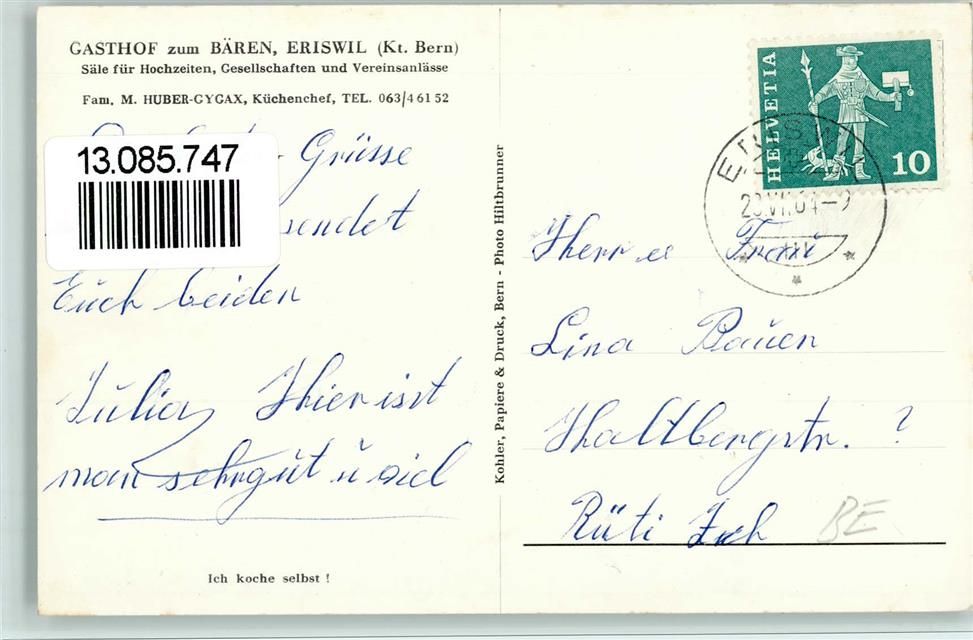 GASTHOF zum BÄREN, ERISWIL (Kt. Bern)
Säle für Hochzeiten, Gesellschaften und Vereinsanlässe
Fam. M. HUBER-GYGAX, Küchenchef, TEL. 063/4 61 52
13.085.747
Grüsse
sendet
Euch beiden
Julia, Hier isst
man sehr gut u viel
Ich koche selbst !
Kohler, Papiere & Druck, Bern - Photo Hiltbrunner
HELVETIA
10
ERISWIL
VI.64-9
Herr u Frau
Lina Bauen
Haltbergstr. ?
Rüti Zch
BE